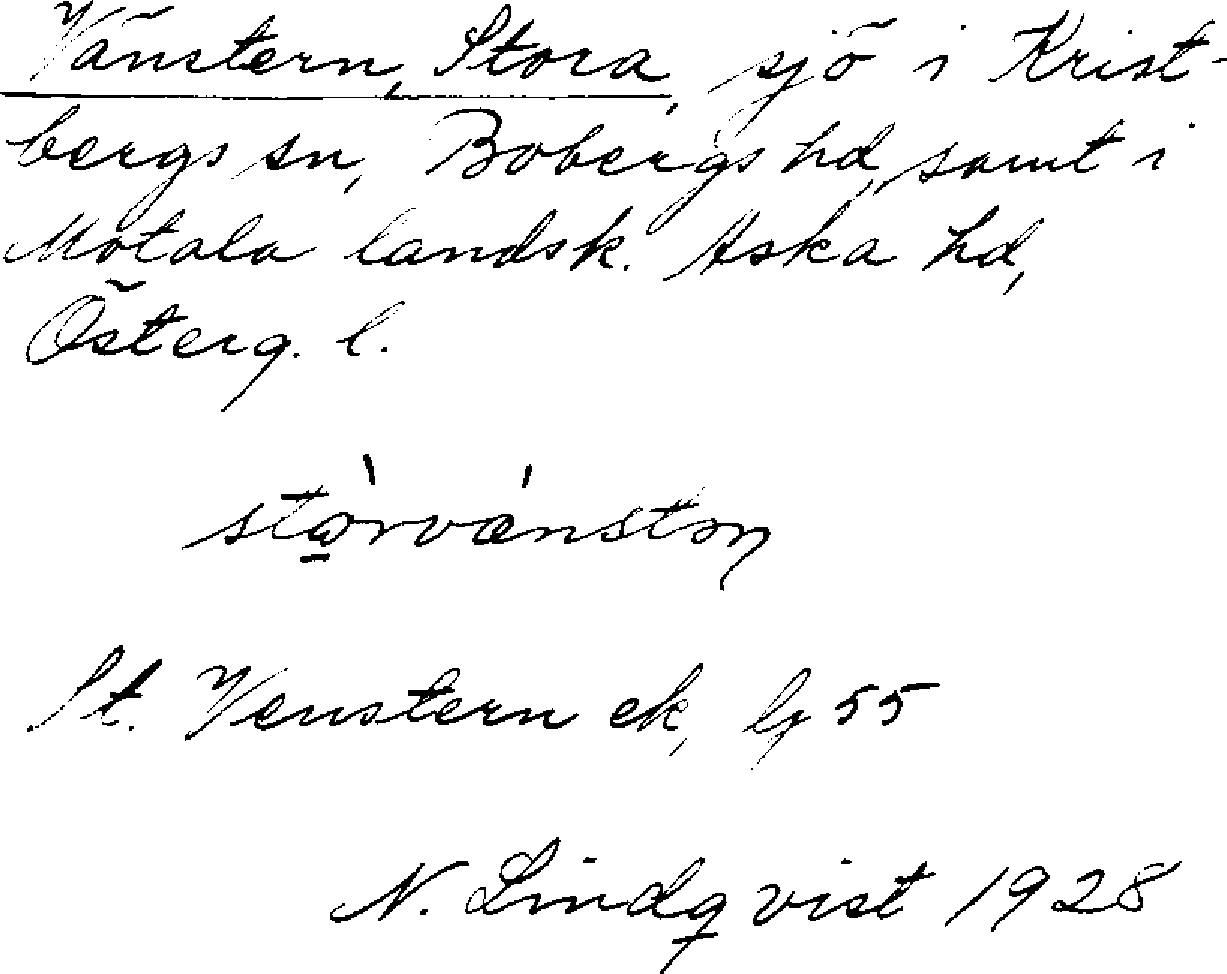 Vänstern, Stora, sjö i Krist-
bergs sn, Bobergs hd, samt i
Motala landsk. Aska hd,
Österg. l.
St. Venstern ek, 55
N. Lindqvist 1928